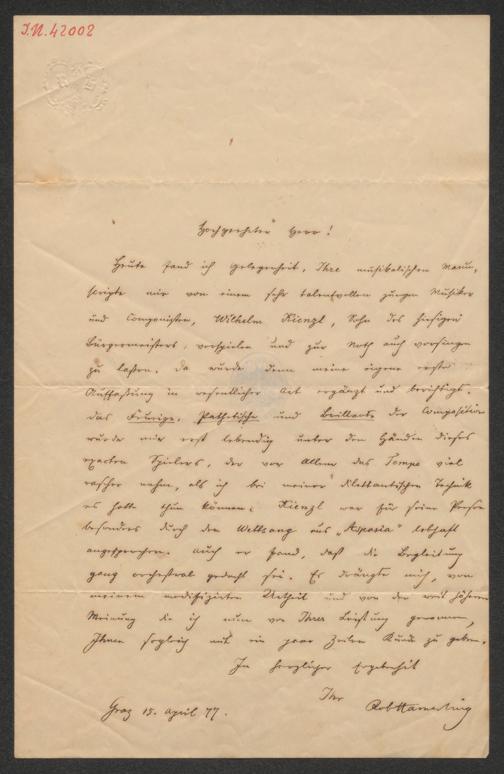 I.N. 42002
Hochgeehrter Herr!
Heute fand ich Gelegenheit, Ihre musikalischen Manu-
scripte mir von einem sehr talentvollen jungen Musiker
und Componisten, Wilhelm Kienzl, Sohn des hiesigen
Bürgermeisters, vorspielen und zur Noth auch vorsingen
zu lassen. Da wurde denn meine eigene erste
Auffassung in wesentlicher Art ergänzt und berichtigt.
Das Feurige, Pathetische und Brillante der Composition
wurde mir erst lebendig unter den Händen dieses
exacten Spielers, der vor Allem das Tempo viel
rascher nahm, als ich bei meiner dilettantischen Technik
es hatte thun können. Kienzl war für seine Person
besonders durch den Weltsang aus „Aspasia" lebhaft
angesprochen. Auch er fand, daß die Begleitung
ganz orchestral gedacht sei. Es drängte mich, von
meinem modifizirten Urtheil und von der weit höheren
Meinung die ich nun von Ihrer Leistung gewonnen,
Ihnen sogleich mit ein paar Zeilen Kunde zu geben.
In herzlicher Ergebenheit
Ihr
Rob Hamerling
Graz 15. April 77.